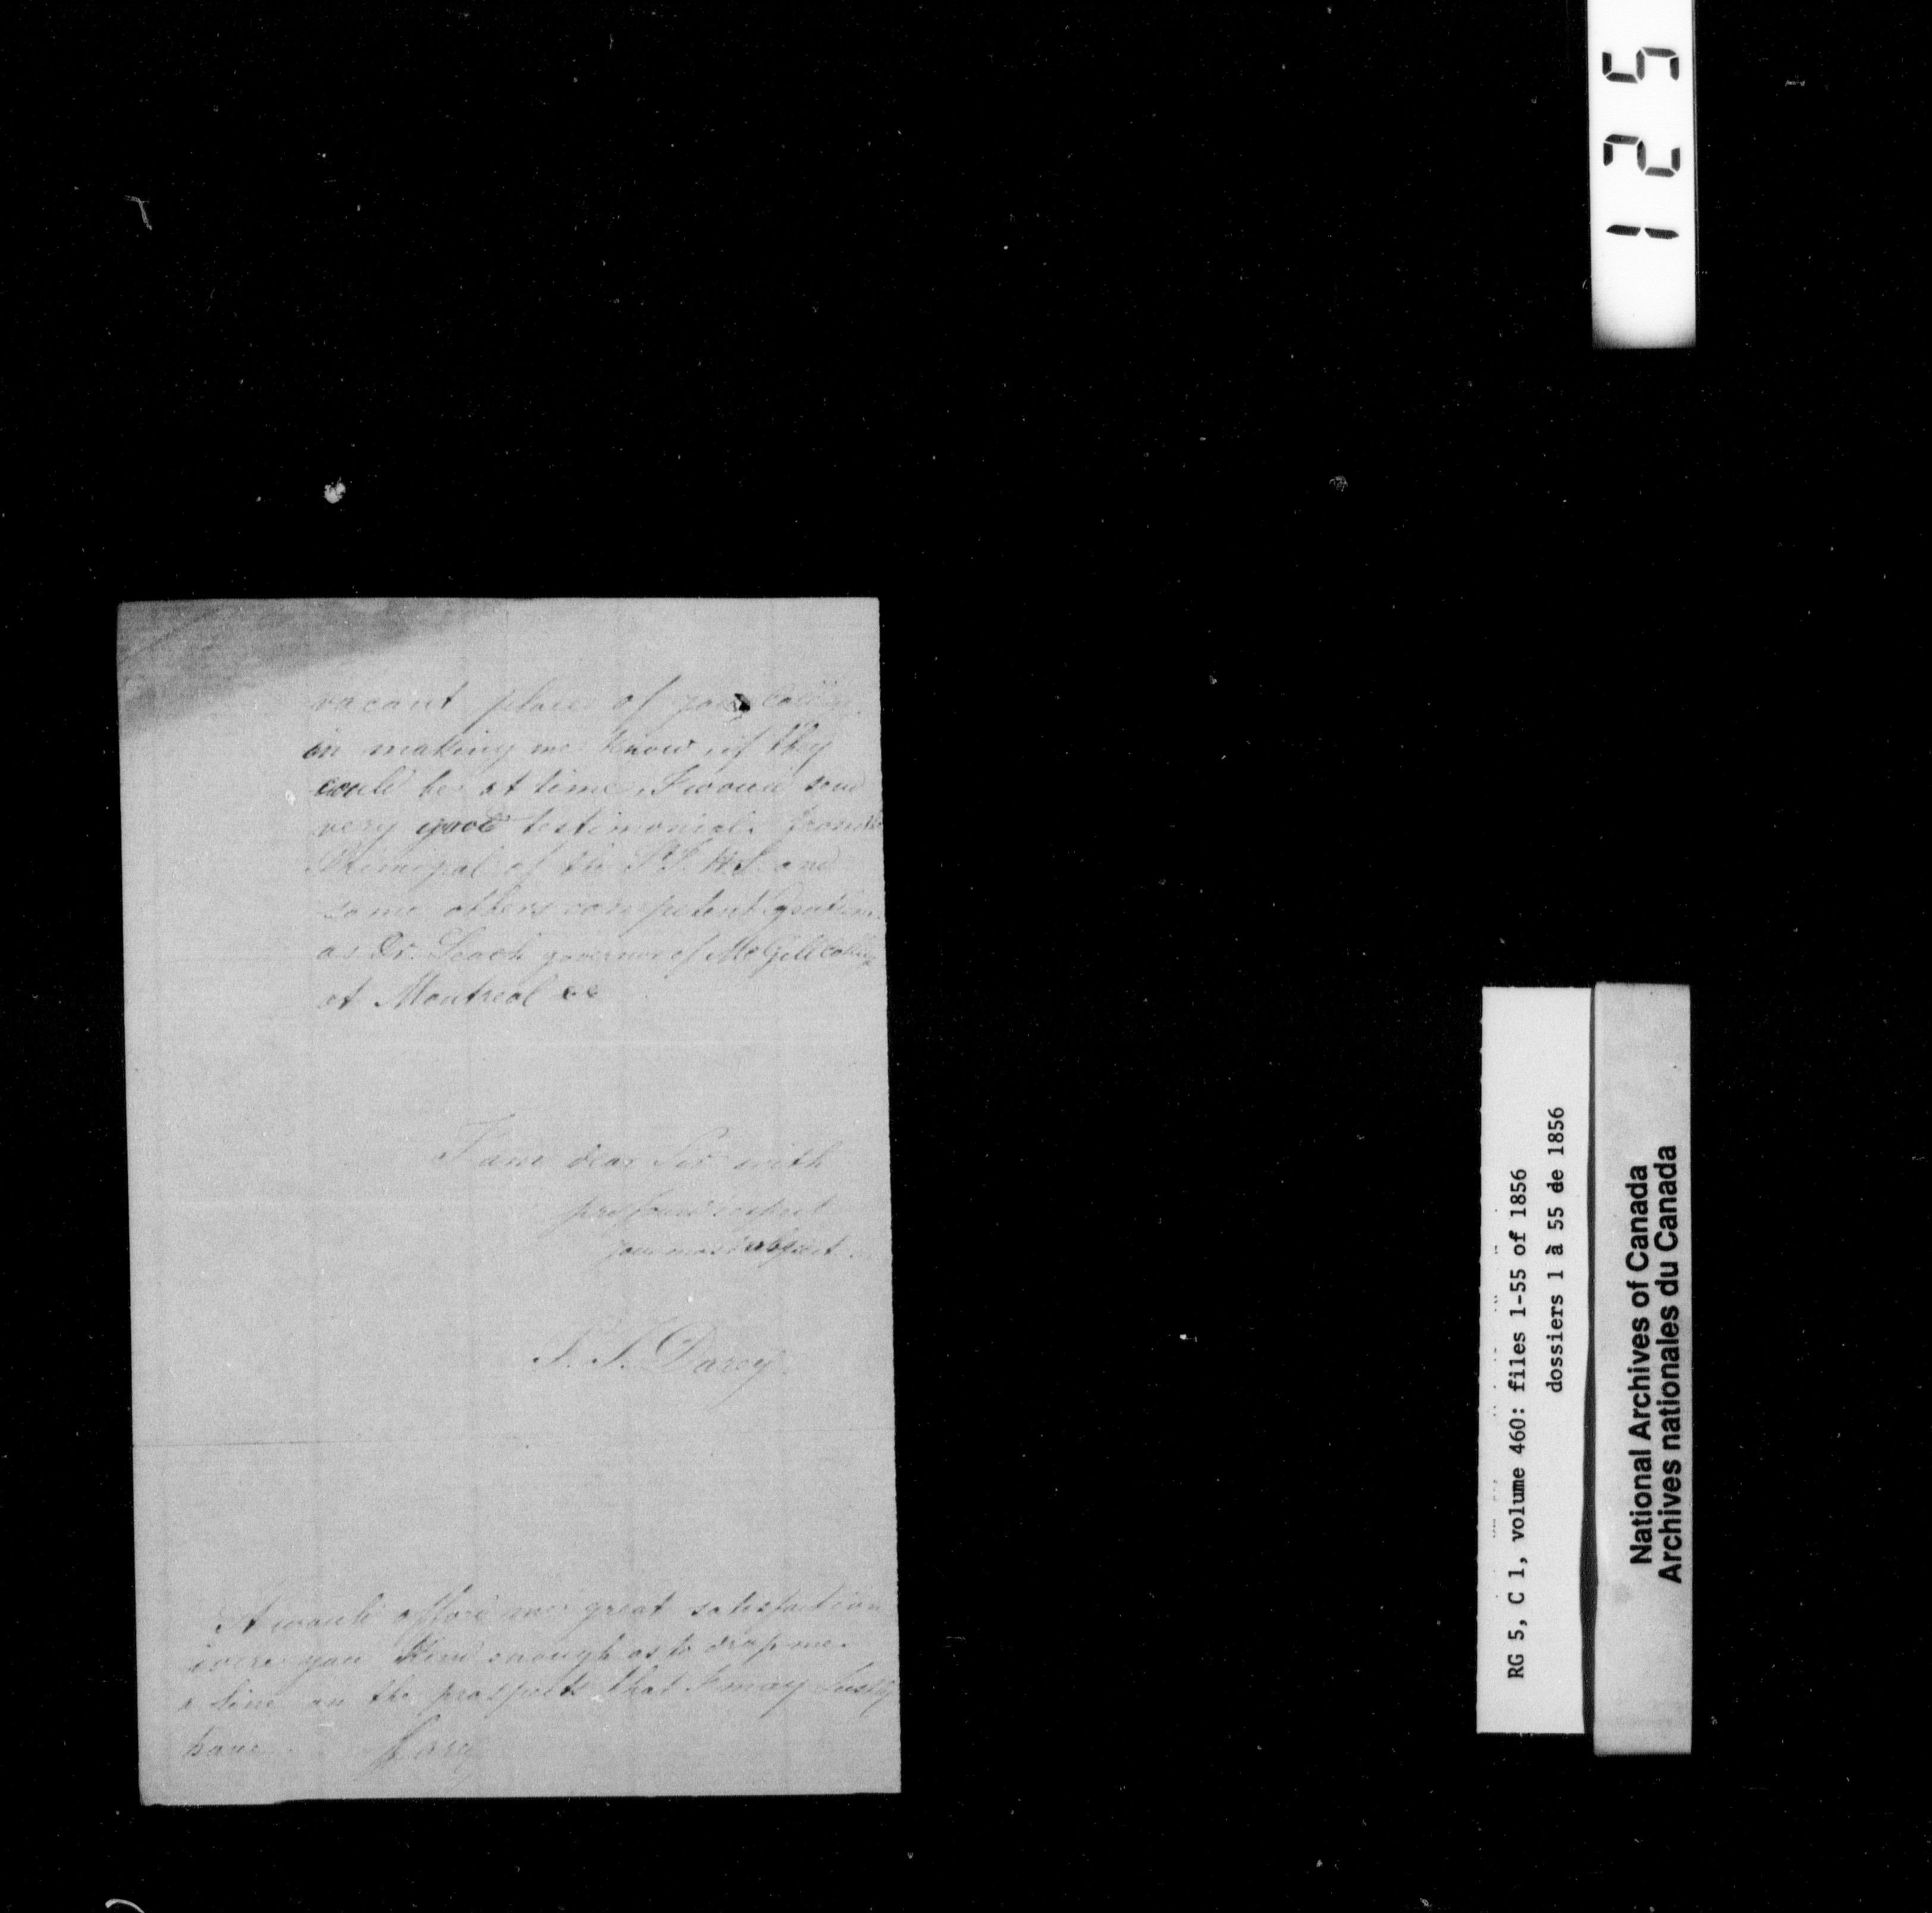 vacant place of your College
in making me know if they
could be at time, I would send
very good testimonials from the
Principal of the and
some others competent gentlemen
as Dr. Leach governor of McGill College
at Montreal &c
I am dear Sir with
profound respect
your most
Darey
It would afford me great satisfaction
were you kind enough as to drop me
a line on the prospects that I may justly
have.
125
RG 5, C 1, volume 460: files 1-55 of 1856
dossiers 1 à 55 de 1856
National Archives of Canada
Archives nationales du Canada